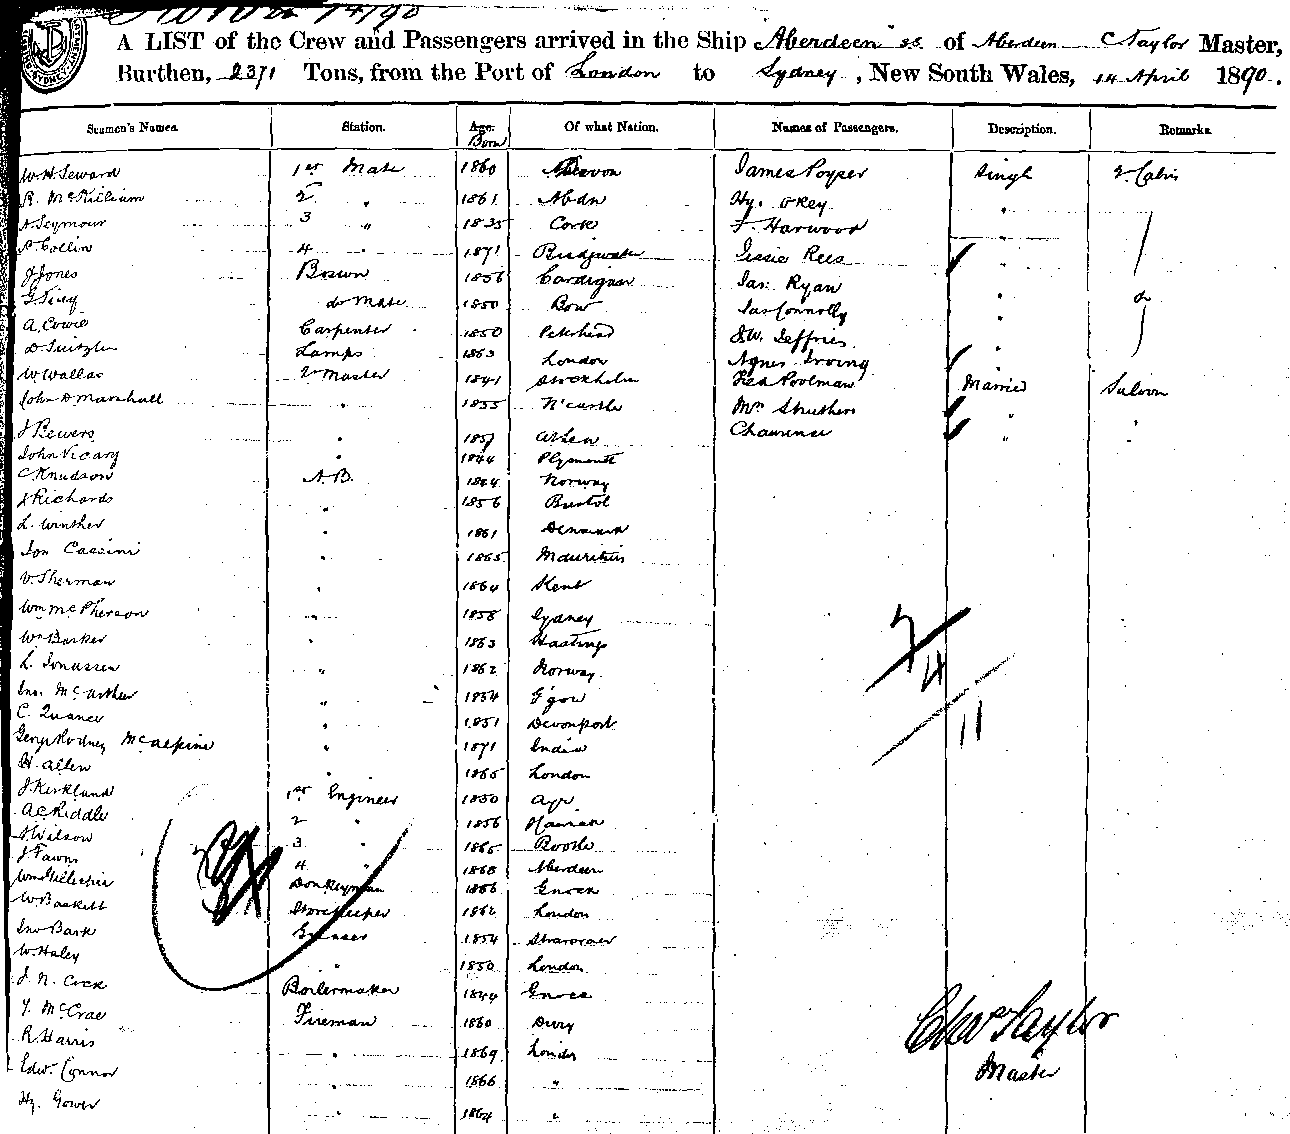 A LIST of the Crew and Passengers arrived in the Ship Aberdeen ss. of Aberdeen C Taylor Master,
Burthen, 2371 Tons, from the Port of London to Sydney, New South Wales, 14 April 1890.
Seamen's Names. Station. Age. Born Of what Nation. Names of Passengers. Description. Remarks.
W. H. Seward 1st Mate 1860 Devon James Poyser Single
R. McKilliam 2 " 1861 Abdn Hy. Okey "
A Seymour 3 " 1835 Cork F. Harwood "
Collin 4 " 1871 Bridgwater Lissie Rees "
J Jones Bosun 1856 Cardigan Jas. Ryan "
G King do Mate 1850 Bow Jas Connolly "
A. Cowie Carpenter 1850 Peterhead J. W. Jeffries "
Lamps 1863 London Agnes Irving "
W. Wallas Qr Master 1841 Stockholm Fred Poolman Married Saloon
John D Marshall " 1855 N'castle Mrs Struthers " "
J Bewers " 1857 "
John Vicary " 1844 Plymouth
C Knudson A.B. 1844 Norway
J Richards " 1856 Bristol
L. Winther " 1861 Denmark
Jon Cassini " 1865 Mauritius
V. Sherman " 1864 Kent
Wm McPherson " 1858 Sydney
Wm Barker " 1863 Hastings
L. Jonassen " 1862 Norway
Jno. McArthur " 1854 G'gow
C. Quance " 1851 Devonport
George Rodney McAlpine " 1871 India
H. Allen " 1865 London
J Kirkland 1st Engineer 1850 Ayr
A C Riddle 2 " 1856
J Wilson 3 " 1865 Bootle
J Fawns 4 " 1868 Aberdeen
Wm Gillespie Donkeyman 1866 Gnock
W Baskett Storekeeper 1862 London
Jno Bark Greaser 1854 Stranraer
W. Haley " 1850 London
J. N. Cock Boilermaker 1844 Gnock
T. McCrae Fireman 1860
R. Harris " 1869 London
Edw. Connor " 1866 "
Hy. Gower " 1864 "
7/4
11
Chas Taylor
Master